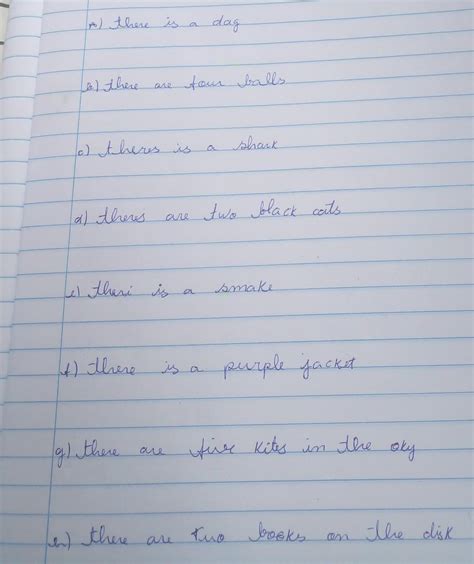 a) there is a dag
b) there are four balls
c) theres is a shark
d) theres are two black cats
e) theri is a smake
f) there is a purple jacket
g) there are five kites in the sky
h) there are two books on the disk